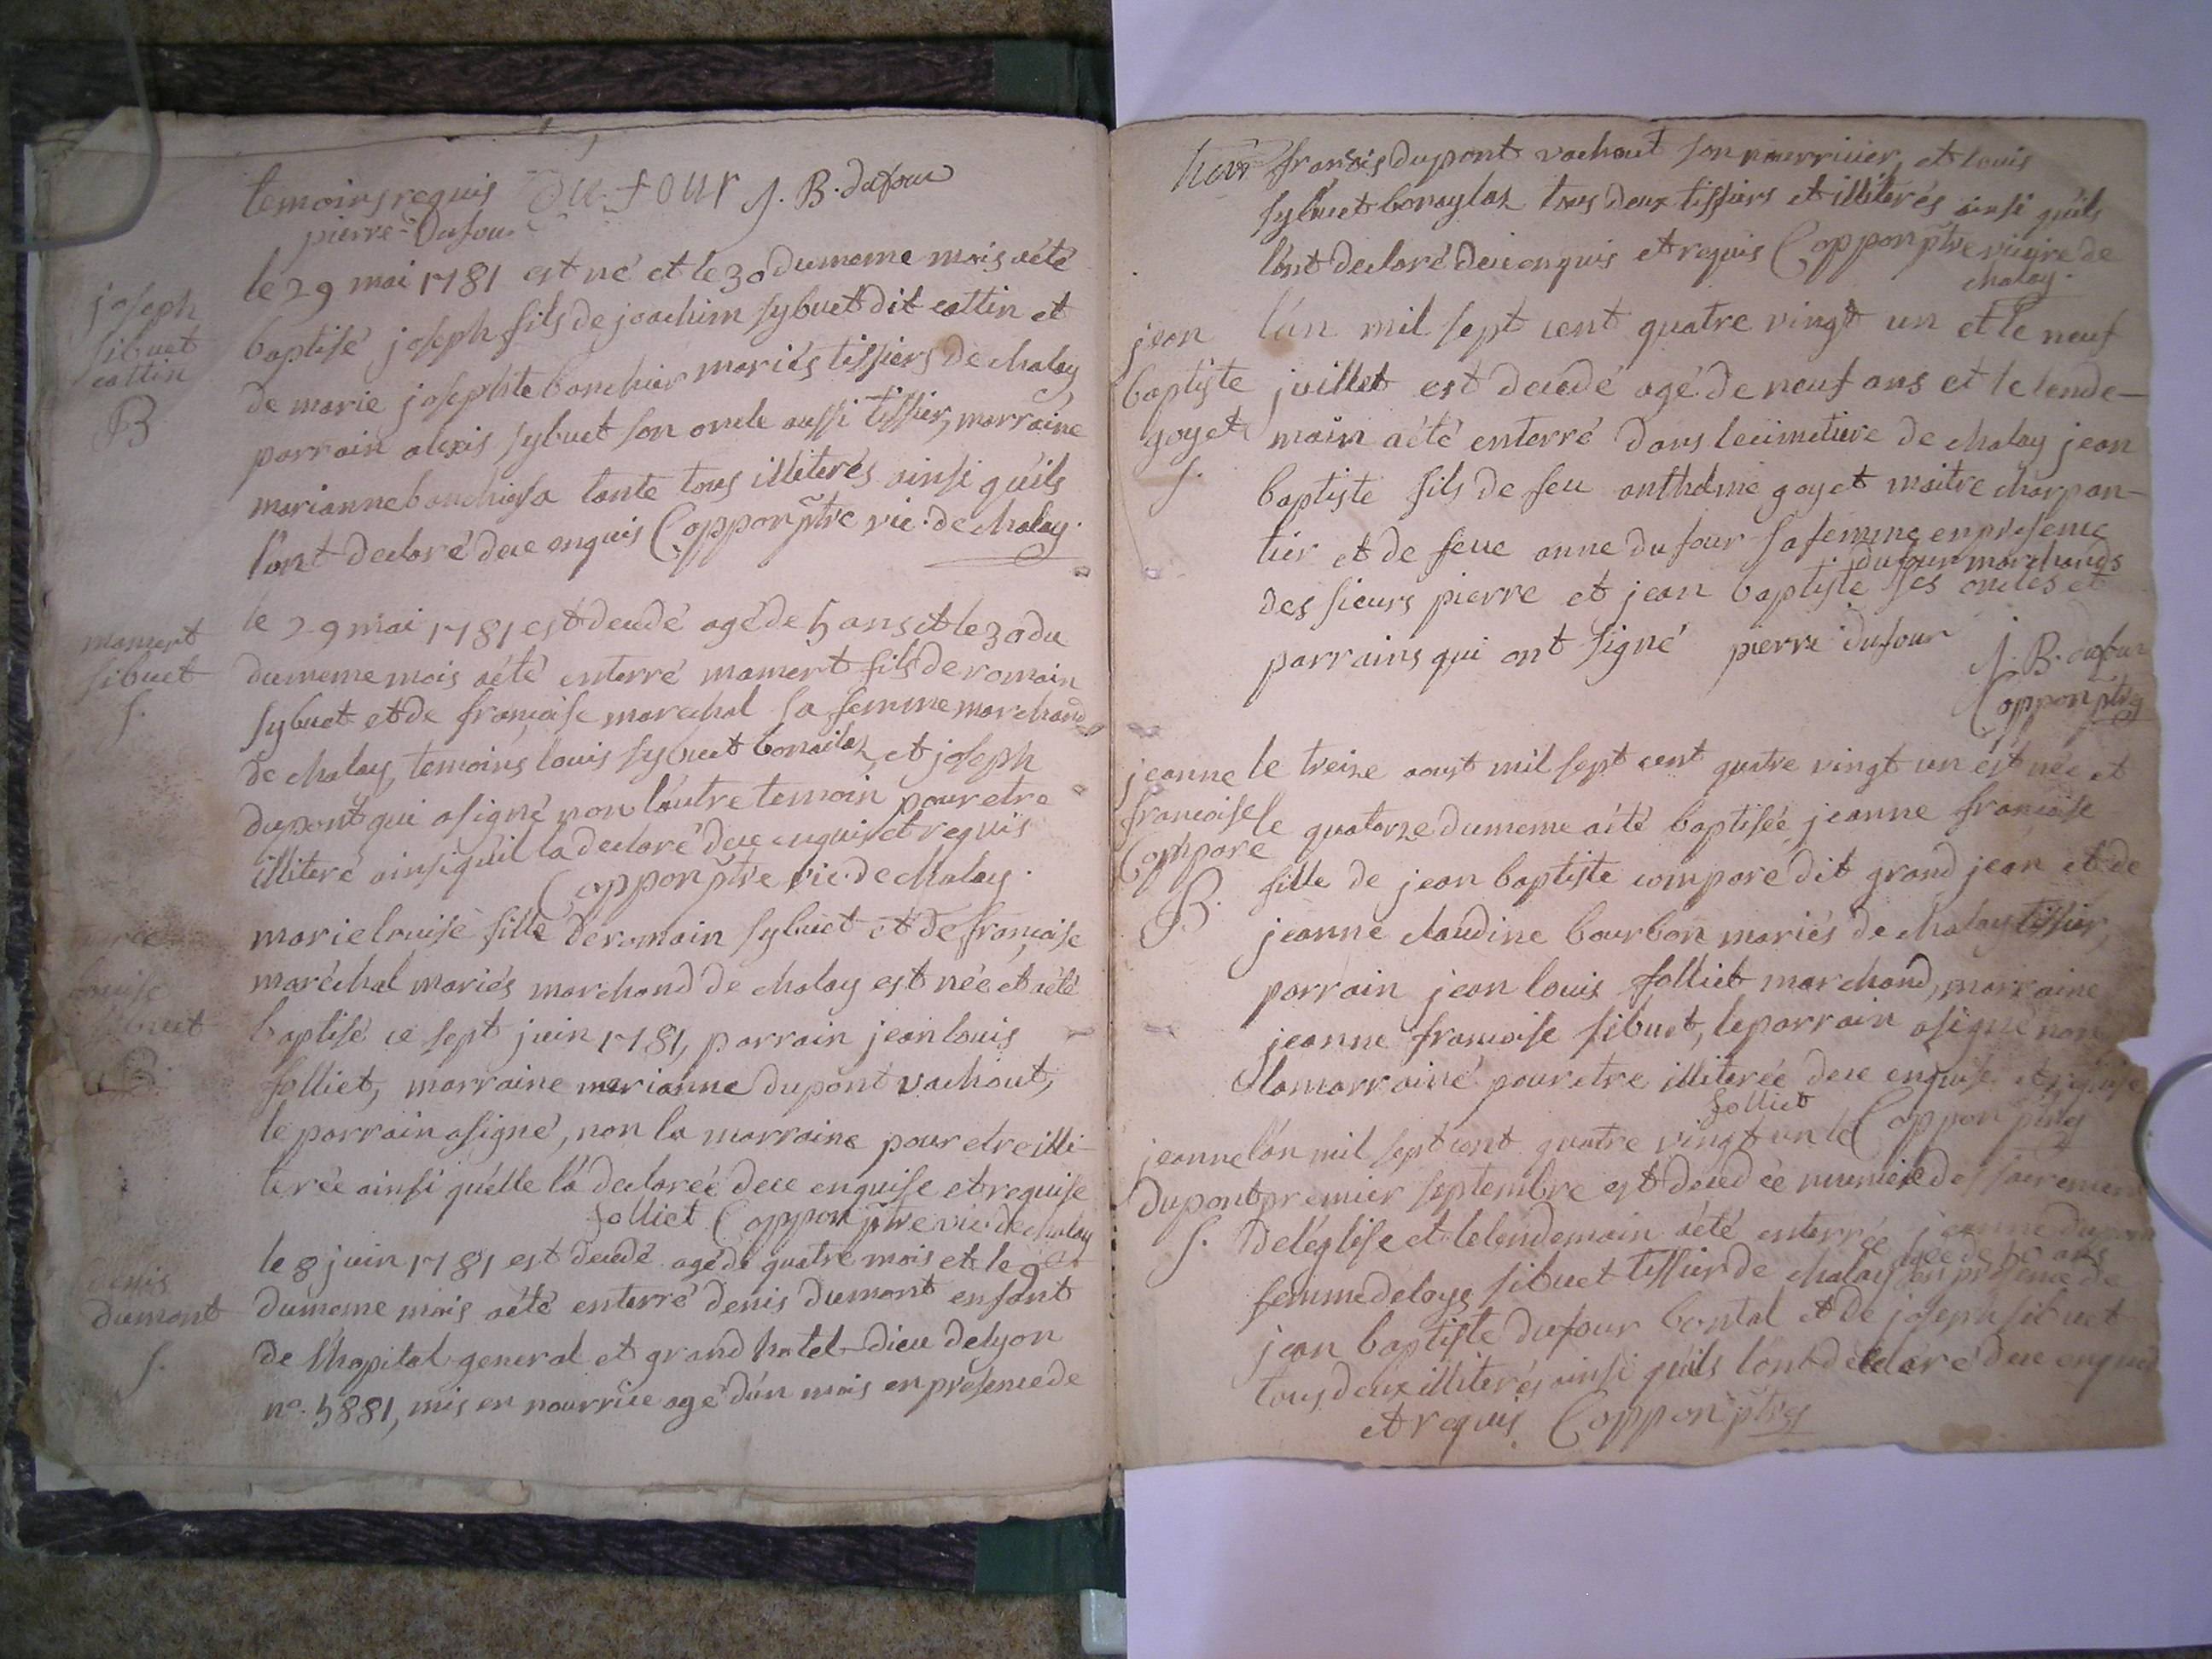 temoins requis Dufour J. B. dufour
pierre Dufour
joseph
sibuet
cattin
B
le 29 mai 1781 est né et le 30 du meme mois a été
baptisé joseph fils de joachim sybuet dit cattin et
de marie josephte bonchier mariés tissiers de chalay
parrain alexis sybuet son oncle aussi tissier, marraine
marianne bonchier sa tante tous illiterés ainsi qu'ils
l'ont declaré de ce enquis Coppon ptre vic. de chalay.
mamert
sibuet
S.
le 29 mai 1781 est decedé agé de 5 ans et le 30 du
du meme mois a été enterré mamert fils de romain
sybuet et de françoise marechal sa femme marchand
de chalay, temoins louis sybuet bonailaz et joseph
dupont qui a signé non l'autre temoin pour etre
illiteré ainsi qu'il la declaré de ce enquis et requis
Coppon ptre vic. de chalay.
marie
louise
sibuet
B
marie louise fille de romain sybuet et de françoise
maréchal mariés marchand de chalay est née et a été
baptisé ce sept juin 1781, parrain jean louis
folliet, marraine marianne dupont vachout,
le parrain a signé, non la marraine pour etre illi-
terée ainsi qu'elle l'a declarée de ce enquise et requise
folliet Coppon ptre vic. de chalay
denis
dumont
S.
le 8 juin 1781 est decedé agé de quatre mois et le 9
du meme mois a été enterré denis dumont enfant
de l'hopital general et grand hotel-dieu de lyon
n°. 5881, mis en nourrice agé d'un mois en presence de
françois dupont vachout son nourricier, et louis
sybuet bonaylaz tous deux tissiers et illiterés ainsi qu'ils
l'ont declaré de ce enquis et requis Coppon ptre vicaire de
chalay.
jean
baptiste
goyet
S.
l'an mil sept cent quatre vingt un et le neuf
juillet est decedé agé de neuf ans et le lende-
main a été enterré dans le cimetiere de chalay jean
baptiste fils de feu anthelme goyet maitre charpan-
tier et de feue anne dufour sa femme en presence
dufour marchands
des sieurs pierre et jean baptiste ses oncles et
parrains qui ont signé pierre dufour J. B. dufour
Coppon ptre
jeanne
françoise
Compare
B.
le treize aoust mil sept cent quatre vingt un est née et
le quatorze du meme a été baptisée jeanne françoise
fille de jean baptiste compare dit grand jean et de
jeanne claudine bourbon mariés de chalay tissier,
parrain jean louis folliet marchand, marraine
jeanne françoise sibuet, le parrain a signé non
la marraine pour etre illiterée de ce enquise et requise
folliet Coppon ptre
jeanne
dupont
S.
l'an mil sept cent quatre vingt un le
premier septembre est decedée munie des sacremens
de l'église et le lendemain a été enterrée jeanne dupont
agée de ans
femme de sibuet tissier de chalay en presence de
jean baptiste dufour bontal et de joseph sibuet
tous deux illiterés ainsi qu'ils l'ont declaré de ce enquis
et requis Coppon ptre